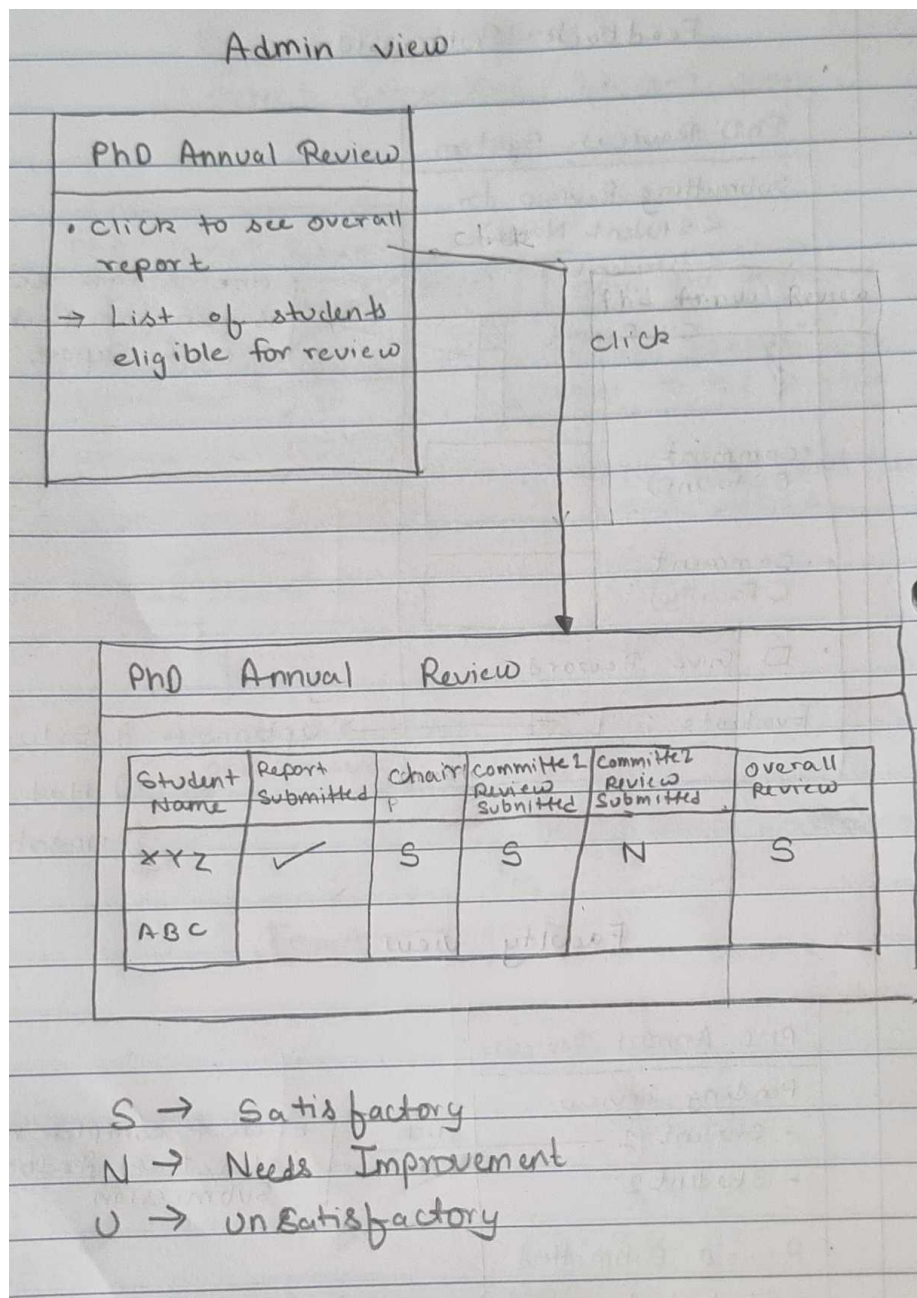 Admin view
PhD Annual Review
• Click to see overall
report
→ List of students
eligible for review
click
PhD Annual Review
Student
Name
Report
Submitted
Committe 1
Review
Submitted
Committe2
Review
Submitted
Overall
Review
XYZ ✓ S S N S
ABC
S → Satisfactory
N → Needs Improvement
U → unsatisfactory